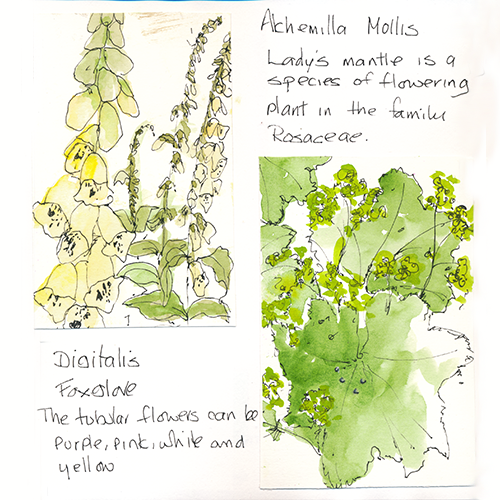 Alchemilla Mollis
Lady's mantle is a
species of flowering
plant in the family
Rosaceae.
Digitalis
Foxglove
The tubular flowers can be
purple, pink, white and
yellow